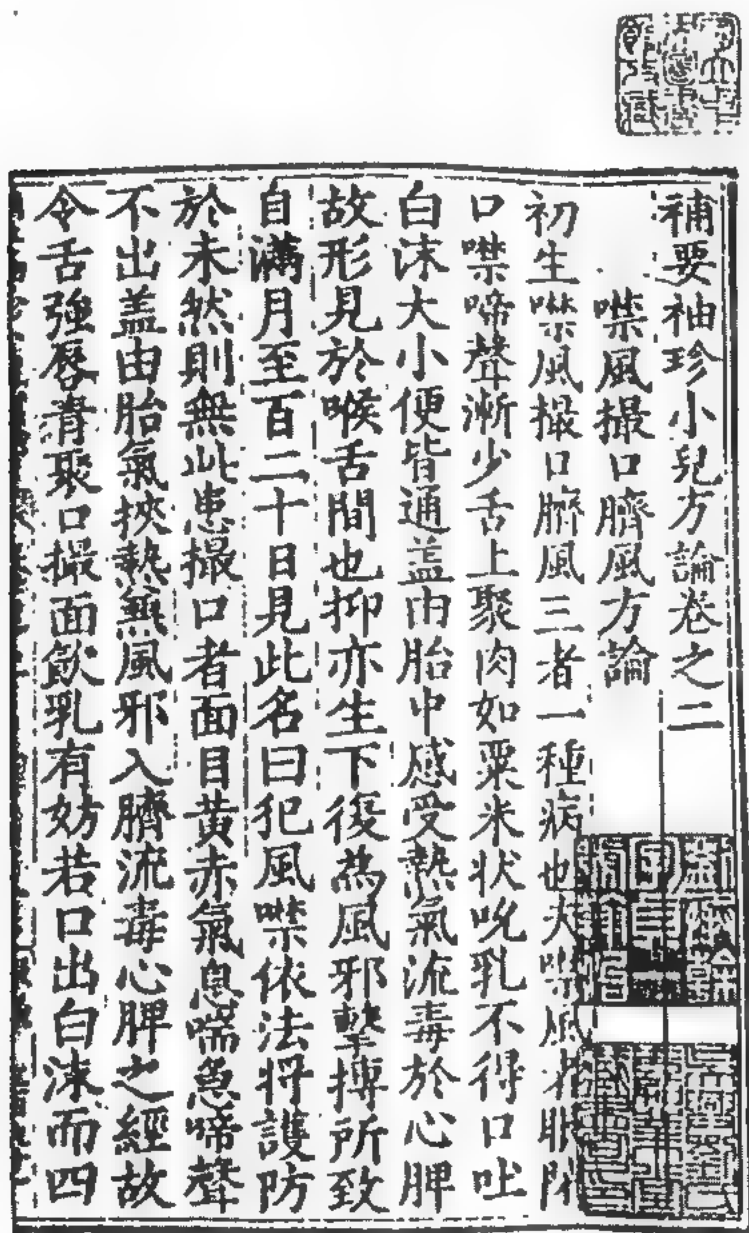 補要袖珍小兒方論卷之二
噤風撮口臍風方論
初生噤風撮口臍風三者一種病也夫噤風者眼閉
口噤啼聲漸少舌上聚肉如粟米状吮乳不得口吐
白沫大小便皆通盖由胎中感受熱氣流毒於心脾
故形見於喉舌間也抑亦生下後為風邪擊搏所致
自滿月至百二十日見此名曰犯風噤依法将護防
於未然則無此患撮口者面目黃赤氣息喘急啼聲
不出盖由胎氣挾熱兼風邪入臍流毒心脾之經故
令舌強唇青聚口撮面飲乳有妨若口出白沫而四